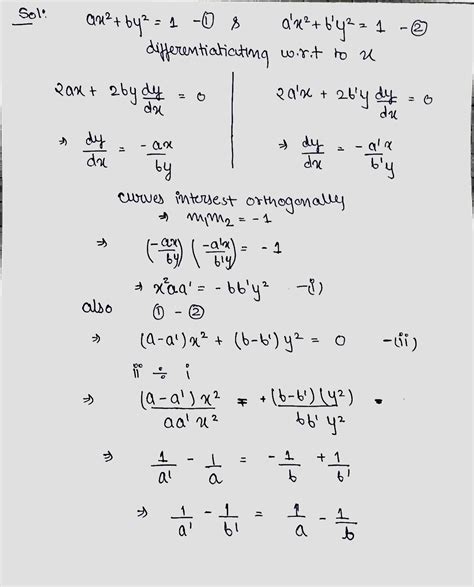 Sol:
ax² + by² = 1 -① & a'x² + b'y² = 1 -②
differentiaticating w.r.t to x
2ax + 2by dy/dx = 0
2a'x + 2b'y dy/dx = 0
⇒ dy/dx = -ax/by
⇒ dy/dx = -a'x/b'y
curves intersest orthogonally
⇒ m₁m₂ = -1
⇒ (-ax/by) (-a'x/b'y) = -1
⇒ x²aa' = -bb'y² -i)
also ① - ②
⇒ (a-a')x² + (b-b')y² = 0 -(ii)
ii ÷ i
⇒ (a-a')x²/aa'x² = +(b-b')(y²)/bb'y²
⇒ 1/a' - 1/a = -1/b + 1/b'
⇒ 1/a' - 1/b' = 1/a - 1/b